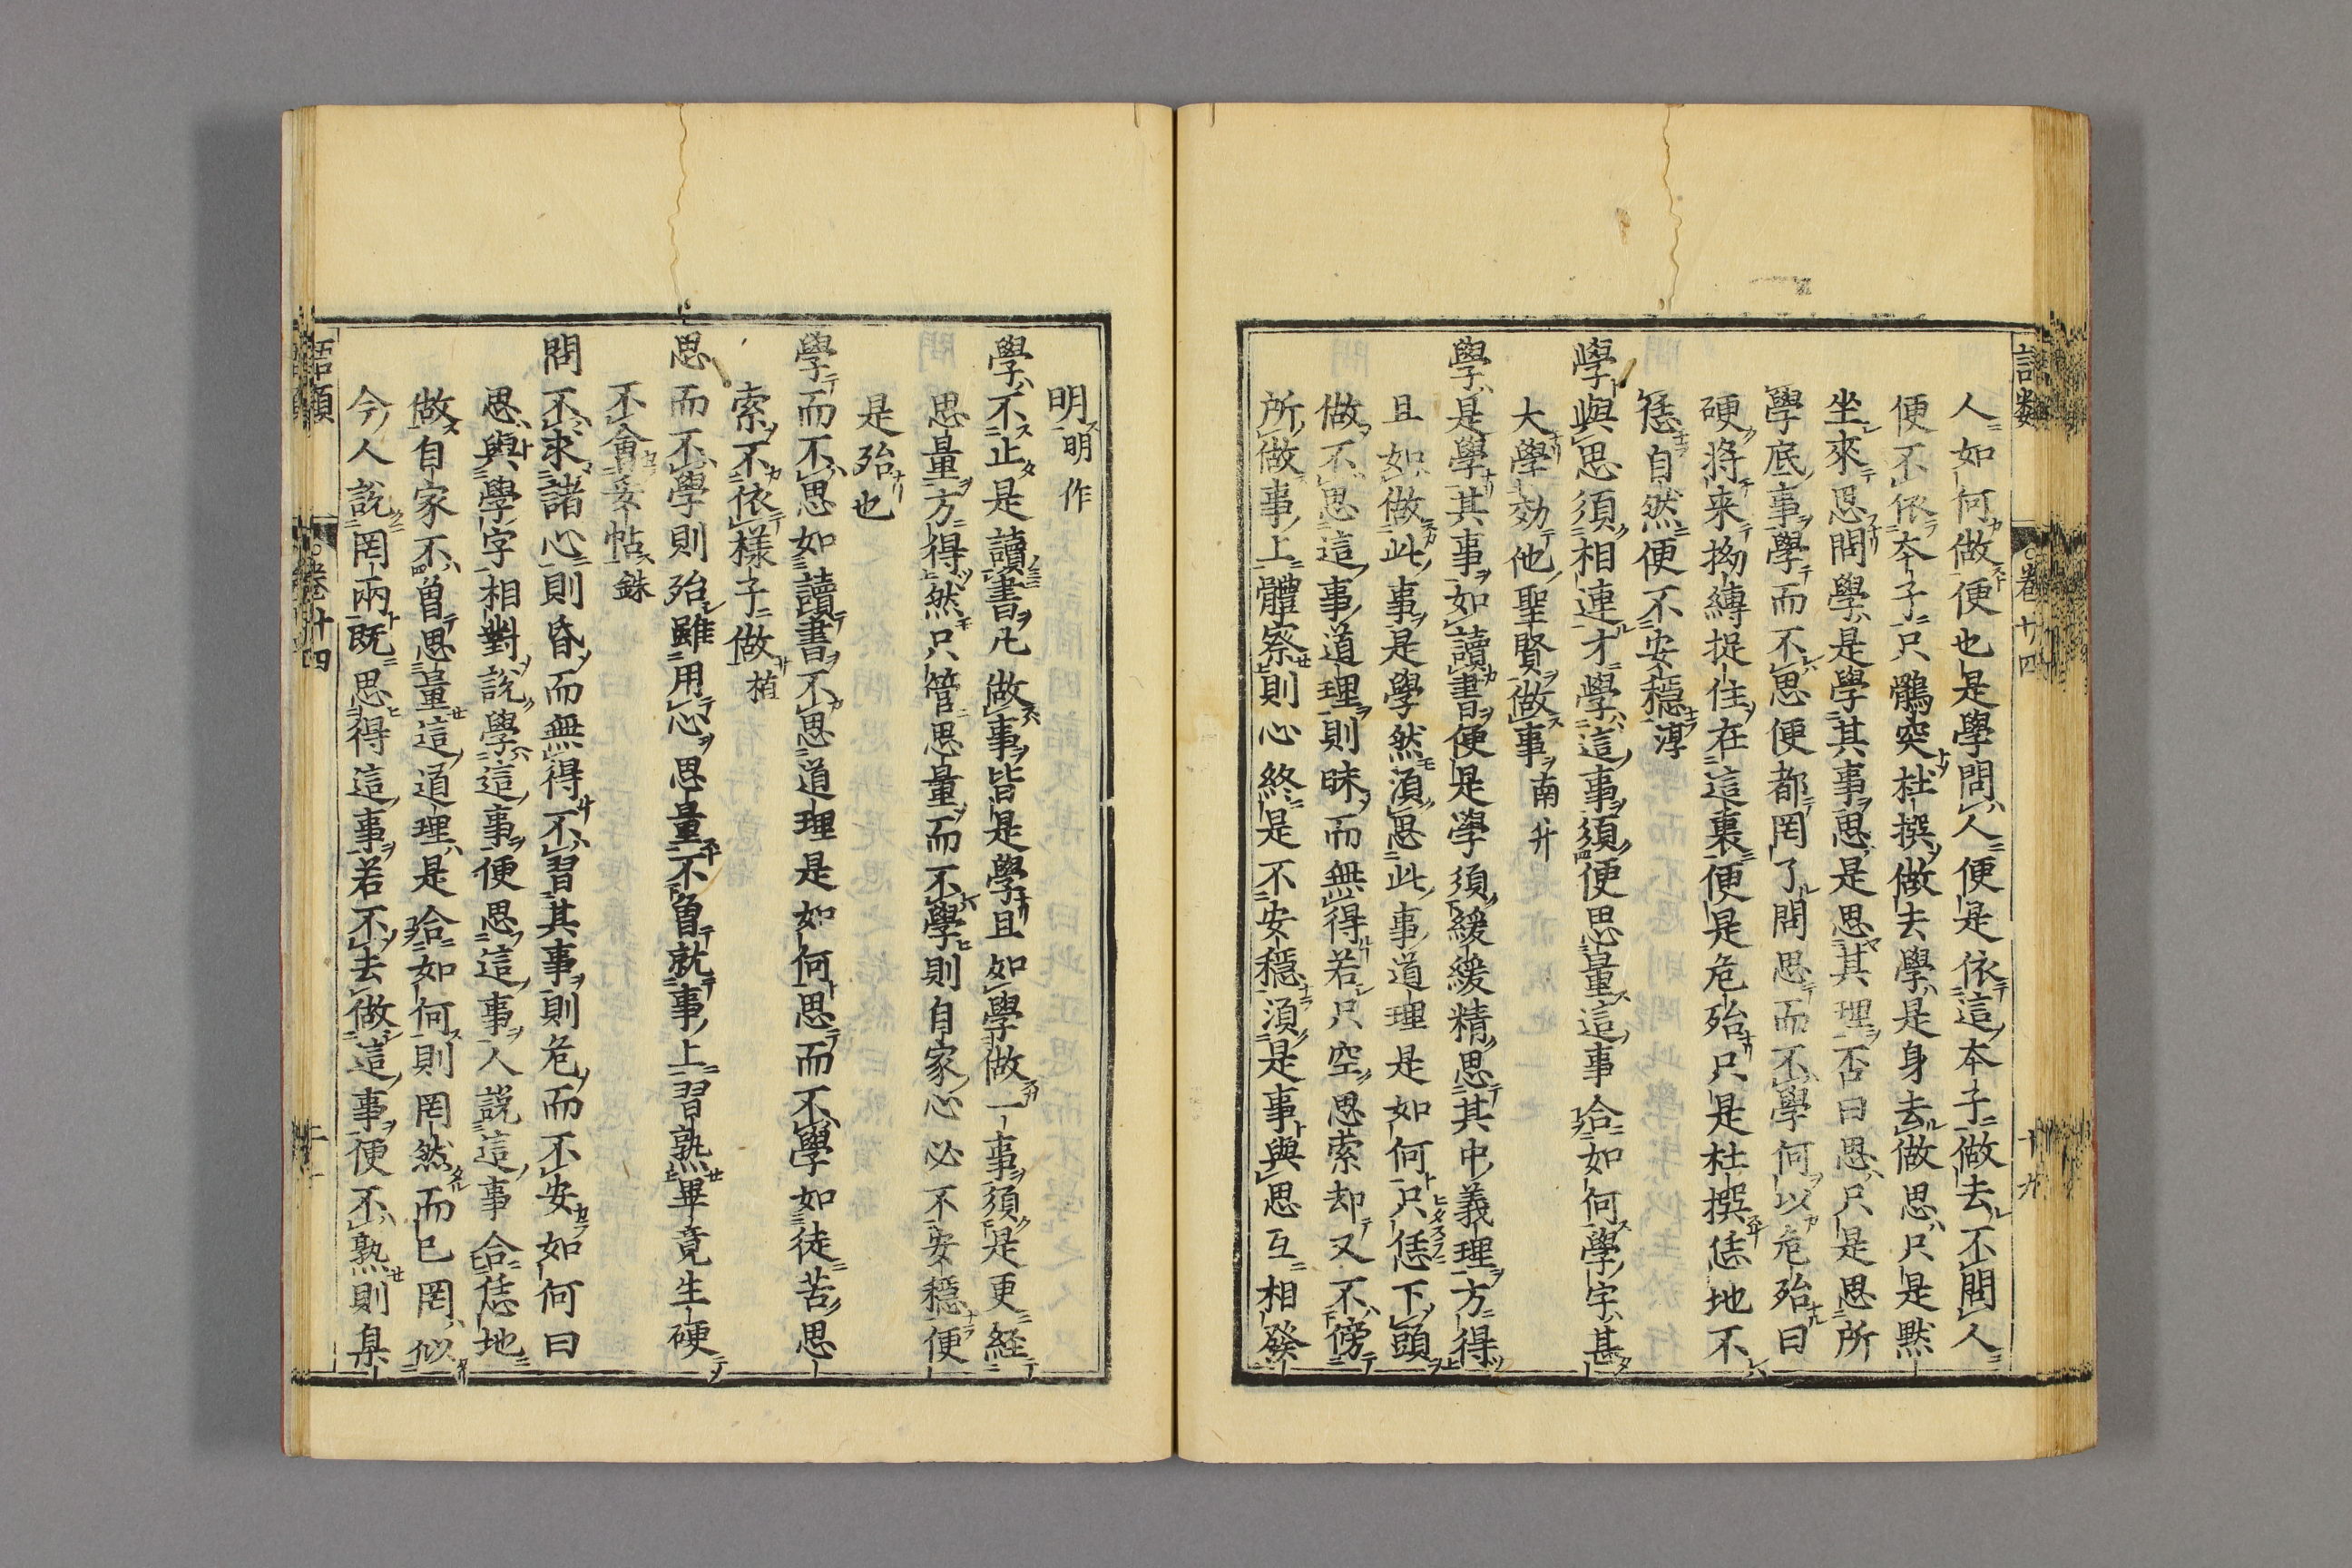 語類 卷十四 十九
人如何做便也是學問人便是依這本子做去不問人
便不依本子只鶻突杜撰做去學是身去做思只是默
坐來思問學是學其事思是思其理否曰思只是思所
學底事學而不思便都罔了問思而不學何以危殆曰
硬將来拗縛捉住在這裏便是危殆只是杜撰恁地不
恁自然便不安穩淳
學與思須相連才學這事須便思量這事合如何學字甚
大學効他聖賢做事南升
學是學其事如讀書便是學須緩緩精思其中義理方得
且如做此事是學然須思此事道理是如何只恁下頭
做不思這事道理則昧而無得若只空思索却又不傍
所做事上體察則心終是不安穩須是事與思互相發
明明作
學不止是讀書凡做事皆是學且如學做一事須是更経
思量方得然只管思量而不學則自家心必不安穩便
是殆也
學而不思如讀書不思道理是如何思而不學如徒苦思
索不依様子做植
思而不學則殆雖用心思量不曾就事上習熟畢竟生硬
不會妥帖銖
問不求諸心則昏而無得不習其事則危而不安如何曰
思與學字相對說學這事便思這事人說這事合恁地
做自家不曾思量這道理是合如何則罔然而已罔似
今人說罔兩既思得這事若不去做這事便不熟則臬
語類 卷十四 二十